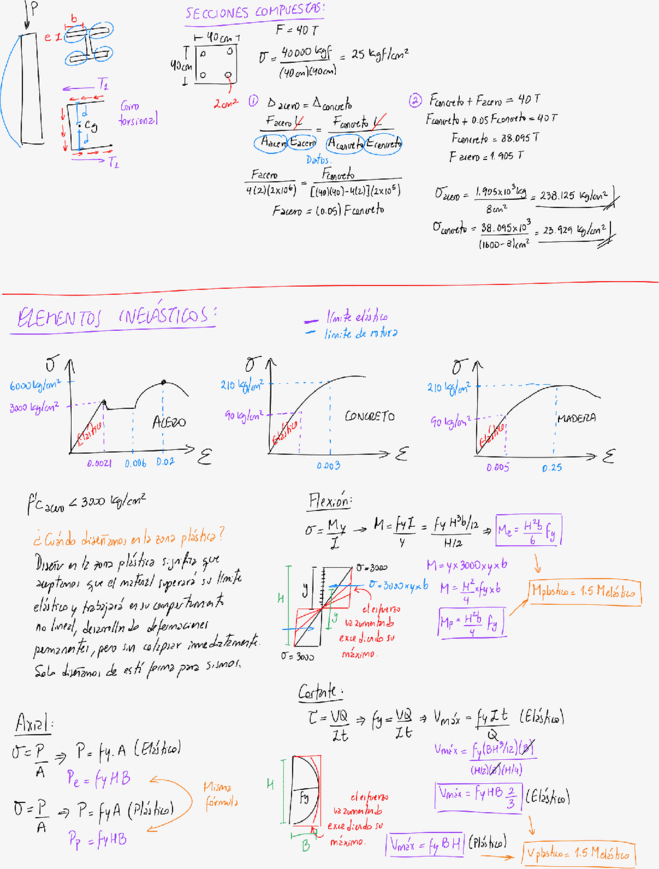 P
b
e I
T₁
Cg
d
d
T₂
Giro
torsional
SECCIONES COMPUESTAS:
F = 40T
40cm
40cm
2cm²
σ = 40000 kgf / (40cm)(40cm) = 25 kgf/cm²
① Δacero = Δconcreto
Facero L / Aacero Eacero = Fconcreto L / Aconcreto Econcreto
Datos.
Facero / 4(2)(2x10⁶) = Fconcreto / [(40)(40)-4(2)](2x10⁵)
Facero = (0.05) Fconcreto
② Fconcreto + Facero = 40T
Fconcreto + 0.05 Fconcreto = 40T
Fconcreto = 38.095T
Facero = 1.905T
σacero = 1.905x10³kg / 8cm² = 238.125 kg/cm²
σconcreto = 38.095x10³ / (1600-8)cm² = 23.929 kg/cm²
ELEMENTOS INELÁSTICOS:
límite elástico
límite de rotura
σ
6000 kg/cm²
3000 kg/cm²
Elástico
ACERO
0.0021
0.006
0.02
ε
σ
210 kg/cm²
90 kg/cm²
Elástico
CONCRETO
0.003
ε
σ
210 kg/cm²
90 kg/cm²
Elástico
MADERA
0.005
0.25
ε
f'c acero < 3000 kg/cm²
¿Cuándo diseñamos en la zona plástica?
Diseñar en la zona plástica significa que
aceptamos que el material superará su límite
elástico y trabajará en su comportamiento
no lineal, desarrollando deformaciones
permanentes, pero sin colapsar inmediatamente.
Solo diseñamos de esta forma para sismos.
Flexión:
σ = My / I → M = fy I / y = fy H³b/12 / H/2 ⇒ Me = H²b/6 fy
H
y
y
σ=3000
σ=3000xyxb
σ=3000
el esfuerzo
va aumentando
excediendo su
máximo.
M = yx3000xyxb
M = H²/4 xfyxb
Mp = H²b/4 fy
Mplástico = 1.5 Melástico
Axial:
σ = P/A ⇒ P = fy.A (Elástico)
Pe = fyHB
σ = P/A ⇒ P = fyA (Plástico)
Pp = fyHB
Misma
fórmula
Cortante:
τ = VQ/It ⇒ fy = VQ/It ⇒ Vmáx = fyIt/Q (Elástico)
H
Fy
B
el esfuerzo
va aumentando
excediendo su
máximo.
Vmáx = fy(BH³/12)(B) / (H/2)(B)(H/4)
Vmáx = fyHB 2/3 (Elástico)
Vmáx = fyBH (Plástico)
Vplástico = 1.5 Melástico